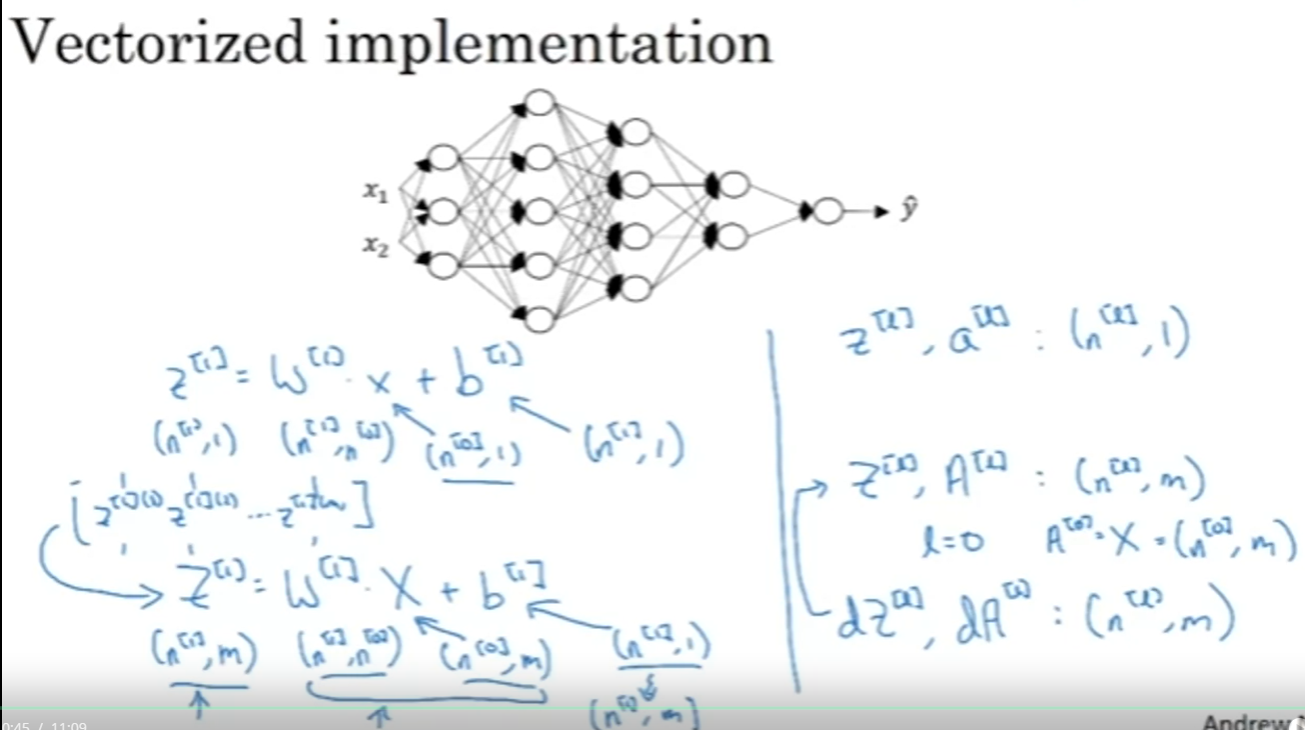 Vectorized implementation
x₁
x₂
ŷ
z^[1] = W^[1] · x + b^[1]
(n^[1], 1) (n^[1], n^[0]) (n^[0], 1) (n^[1], 1)
[z^[1](1) z^[1](2) ... z^[1](m)]
Z^[1] = W^[1] · X + b^[1]
(n^[1], m) (n^[1], n^[0]) (n^[0], m) (n^[1], 1)
(n^[1], m)
z^[l], a^[l] : (n^[l], 1)
Z^[l], A^[l] : (n^[l], m)
l=0 A^[0] = X = (n^[0], m)
dZ^[l], dA^[l] : (n^[l], m)
0:45 / 11:09
Andrew